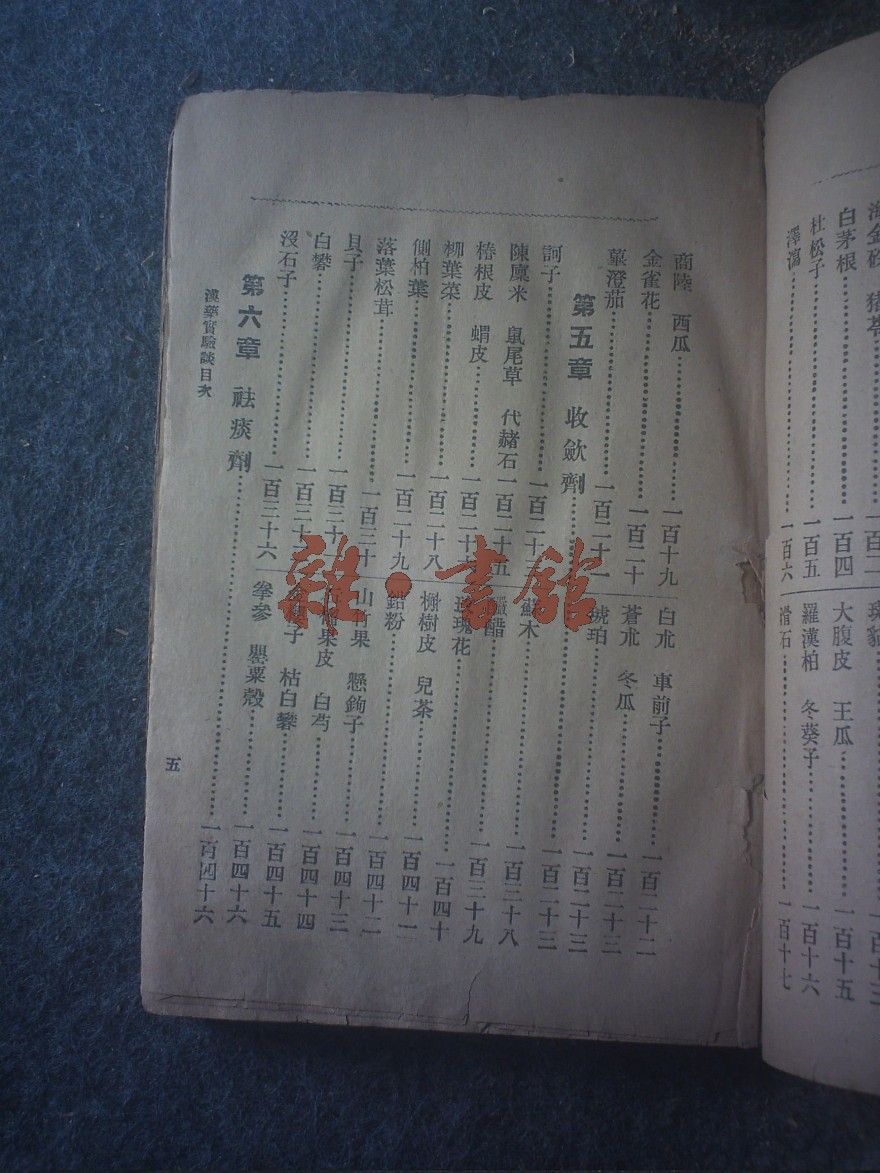 海金砂 猪苓
白茅根……一百四
杜松子……一百五
澤瀉……一百六
大腹皮 王瓜……一百十五
羅漢柏 冬葵子……一百十六
滑石……一百十七
商陸 西瓜……一百十九
金雀花……一百二十
蓽澄茄……一百二十一
白朮 車前子……一百二十二
蒼朮 冬瓜……一百二十三
琥珀……一百二十三
第五章 收歛劑……一百二十三
訶子……一百二十三
陳廩米 鼠尾草 代赭石……一百二十五
椿根皮 蝟皮……一百二十
柳葉菜……一百二十八
側柏葉……一百二十九
落葉松茸……一百三十
貝子……一百三十
白礬……一百三十
沒石子……一百三十六
蘇木……一百三十八
醋……一百三十九
玫瑰花……一百四十
槲樹皮 兒茶……一百四十一
鉛粉……一百四十二
山 果 懸鉤子……一百四十三
果皮 白芍……一百四十四
子 枯白礬……一百四十五
拳參 罌粟殼……一百四十六
第六章 祛痰劑……一百四十六
漢藥實驗談目次
五
雜·書館